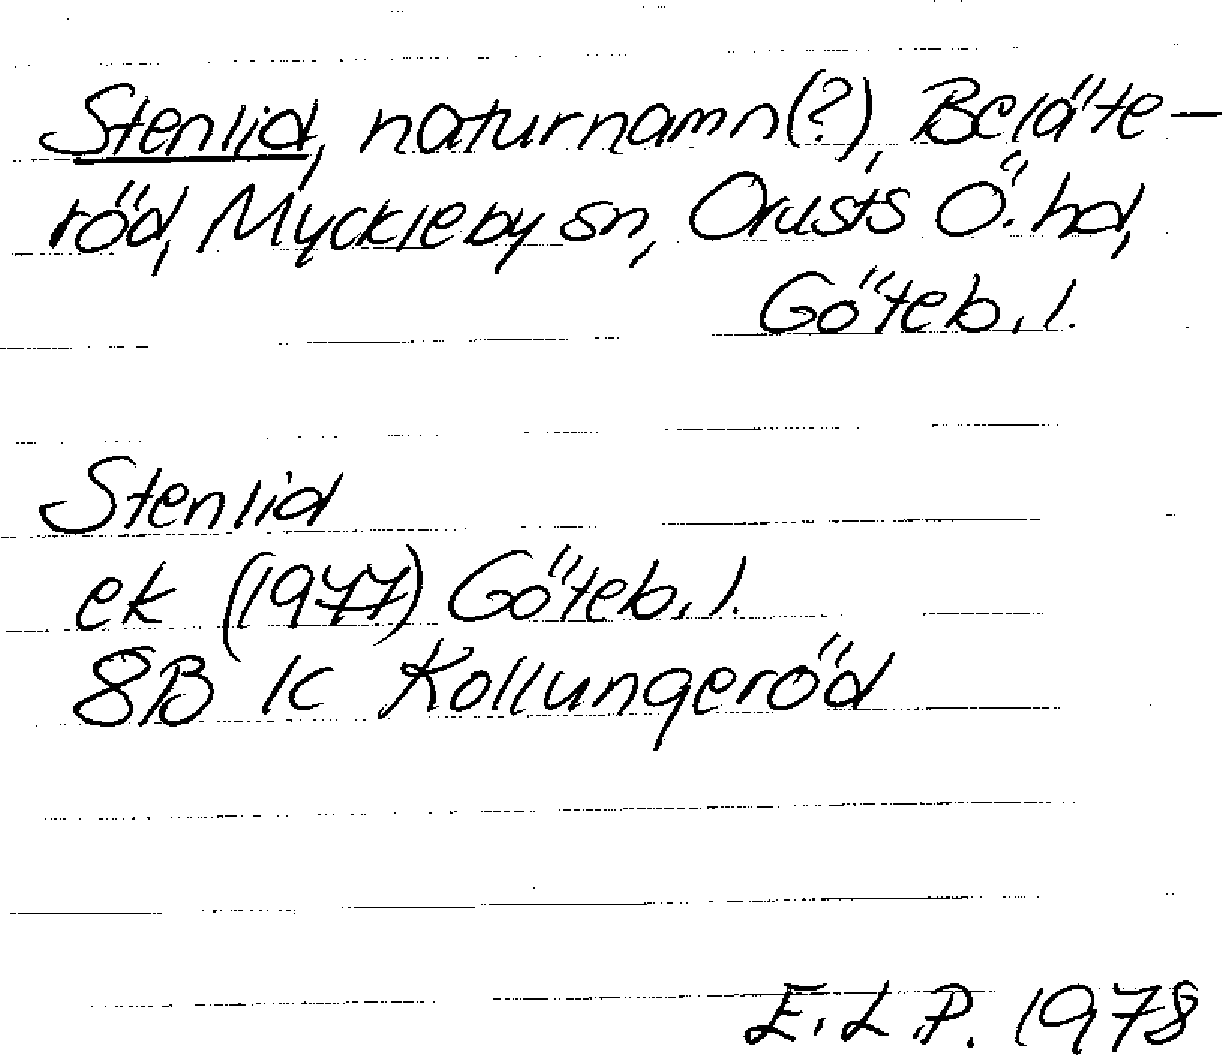 Stenlid, naturnamn(?), Beläte-
röd, Myckleby sn, Orusts Ö. hd,
Göteb. l.
Stenlid
ek (1977) Göteb. l.
8B 1c Kollungeröd
E. L. P. 1978